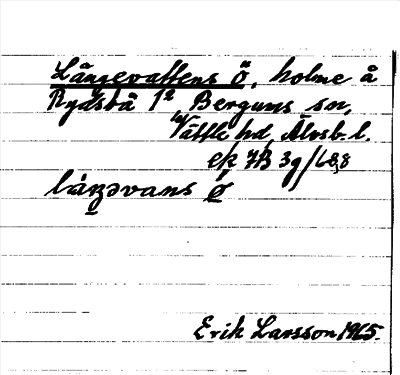 Långevattens Ö, holme å
Rydsbä 1² Bergums sn,
Vättle hd, Älvsb. l.
ek 7B 3g/68,8
láŋəvans ö́
Erik Larsson 1965.